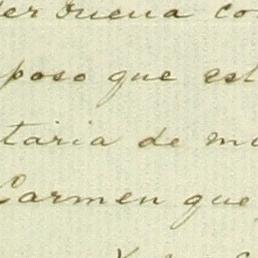 er buena co
poso que est
taria de m
Carmen que